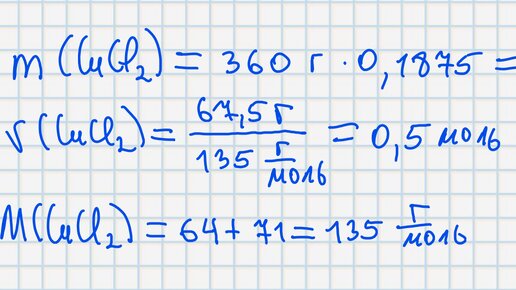 m(CuCl₂) = 360 г · 0,1875 =
ν(CuCl₂) = 67,5 г / 135 г/моль = 0,5 моль
M(CuCl₂) = 64 + 71 = 135 г/моль